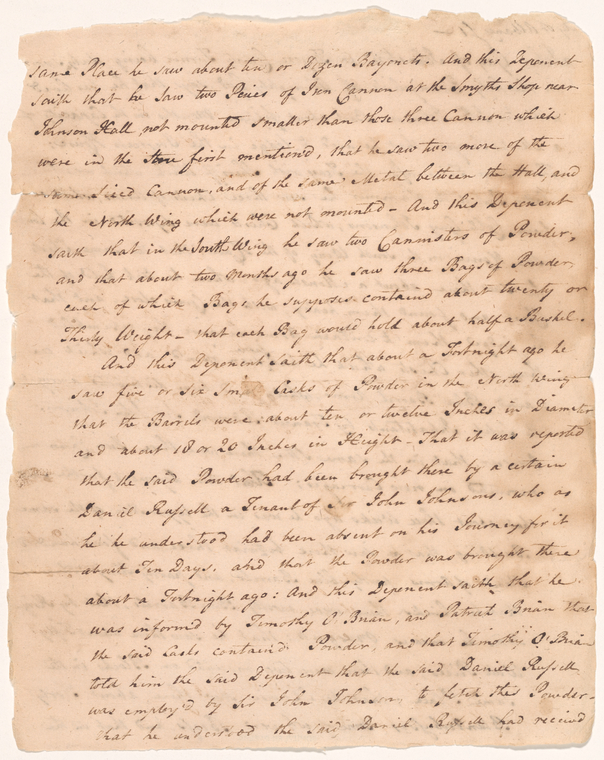 same Place he saw about ten or Dozen Bayonets. And this Deponent
saith that he saw two Peices of Iron Cannon at the Smyths Shop near
Johnson Hall not mounted smaller than those three Cannon which
were in the first mentioned, that he saw two more of the
same sized Cannon, and of the same Metal between the Hall, and
the North Wing which were not mounted - And this Deponent
saith that in the South Wing he saw two Cannisters of Powder,
and that about two Months ago he saw three Bags of Powder,
each of which Bags he supposes containd about twenty or
Thirty Weight - that each Bag would hold about half a Bushel.
And this Deponent saith that about a Fortnight ago he
saw five or Six Small Casks of Powder in the North Wing
that the Barrels were about ten or twelve Inches in Diameter
and about 18 or 20 Inches in Height - That it was reported
that the said Powder had been brought there by a certain
Daniel Russell a Tenant of Sir John Johnsons, who as
he he understood had been absent on his Journey for it
about Ten Days, and that the Powder was brought there
about a Fortnight ago: And this Deponent saith that he
was informd by Timothy O'Brian, and Patrick Brian that
the said Casks containd Powder, and that Timothy O'Brian
told him the said Deponent that the said Daniel Russell
was employ'd by Sir John Johnson to fetch this Powder -
that he understood the said Daniel Russell had receivd